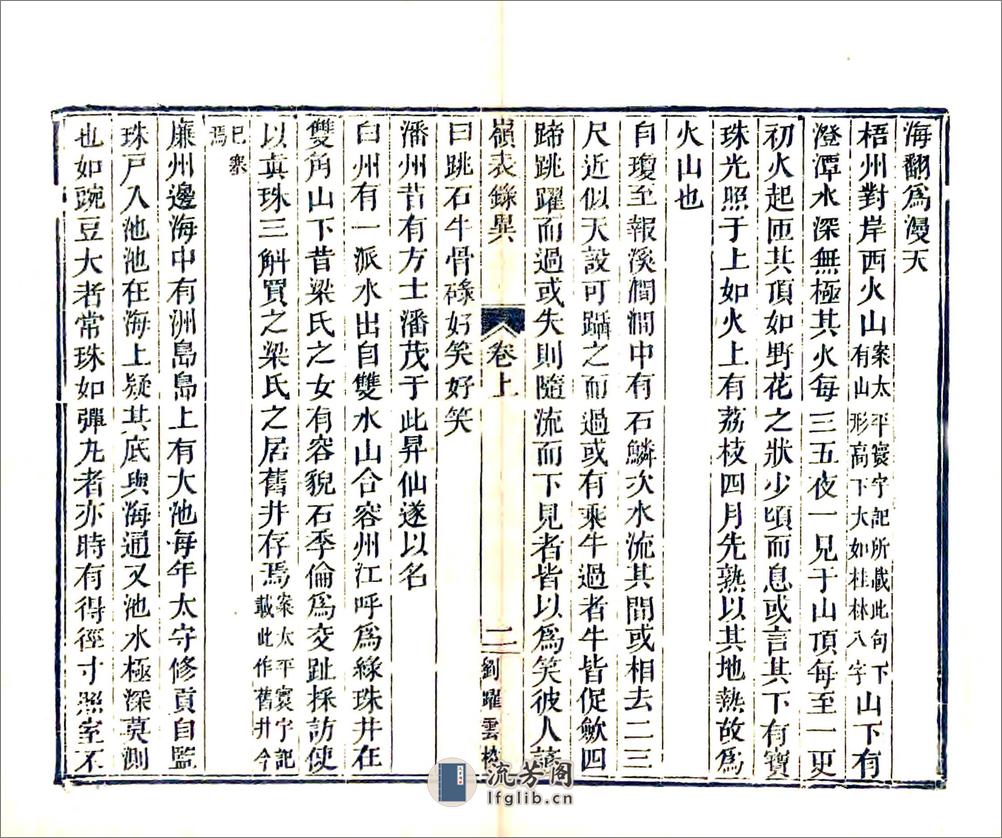 海翻爲漫天
梧州對岸西火山案太平寰宇記所載此句下有山形高下大如桂林八字山下有
澄潭水深無極其火每三五夜一見于山頂每至一更
初火起匝其頂如野花之狀少頃而息或言其下有寶
珠光照于上如火上有荔枝四月先熟以其地熱故爲
火山也
自瓊至報溪澗澗中有石鱗次水流其間或相去二三
尺近似天設可躡之而過或有乘牛過者牛皆促歛四
蹄跳躍而過或失則隨流而下見者皆以爲笑彼人諺
嶺表錄異
卷上
二
劉躍雲校
曰跳石牛骨碌好笑好笑
潘州昔有方士潘茂于此昇仙遂以名
白州有一派水出自雙水山合容州江呼爲綠珠井在
雙角山下昔梁氏之女有容貌石季倫爲交趾採訪使
以真珠三斛買之梁氏之居舊井存焉案太平寰宇記載此作舊井今
已塞焉
廉州邊海中有洲島島上有大池每年太守修貢自監
珠戸入池池在海上疑其底與海通又池水極深莫測
也如豌豆大者常珠如彈丸者亦時有得徑寸照室不
流芳阁
lfglib.cn